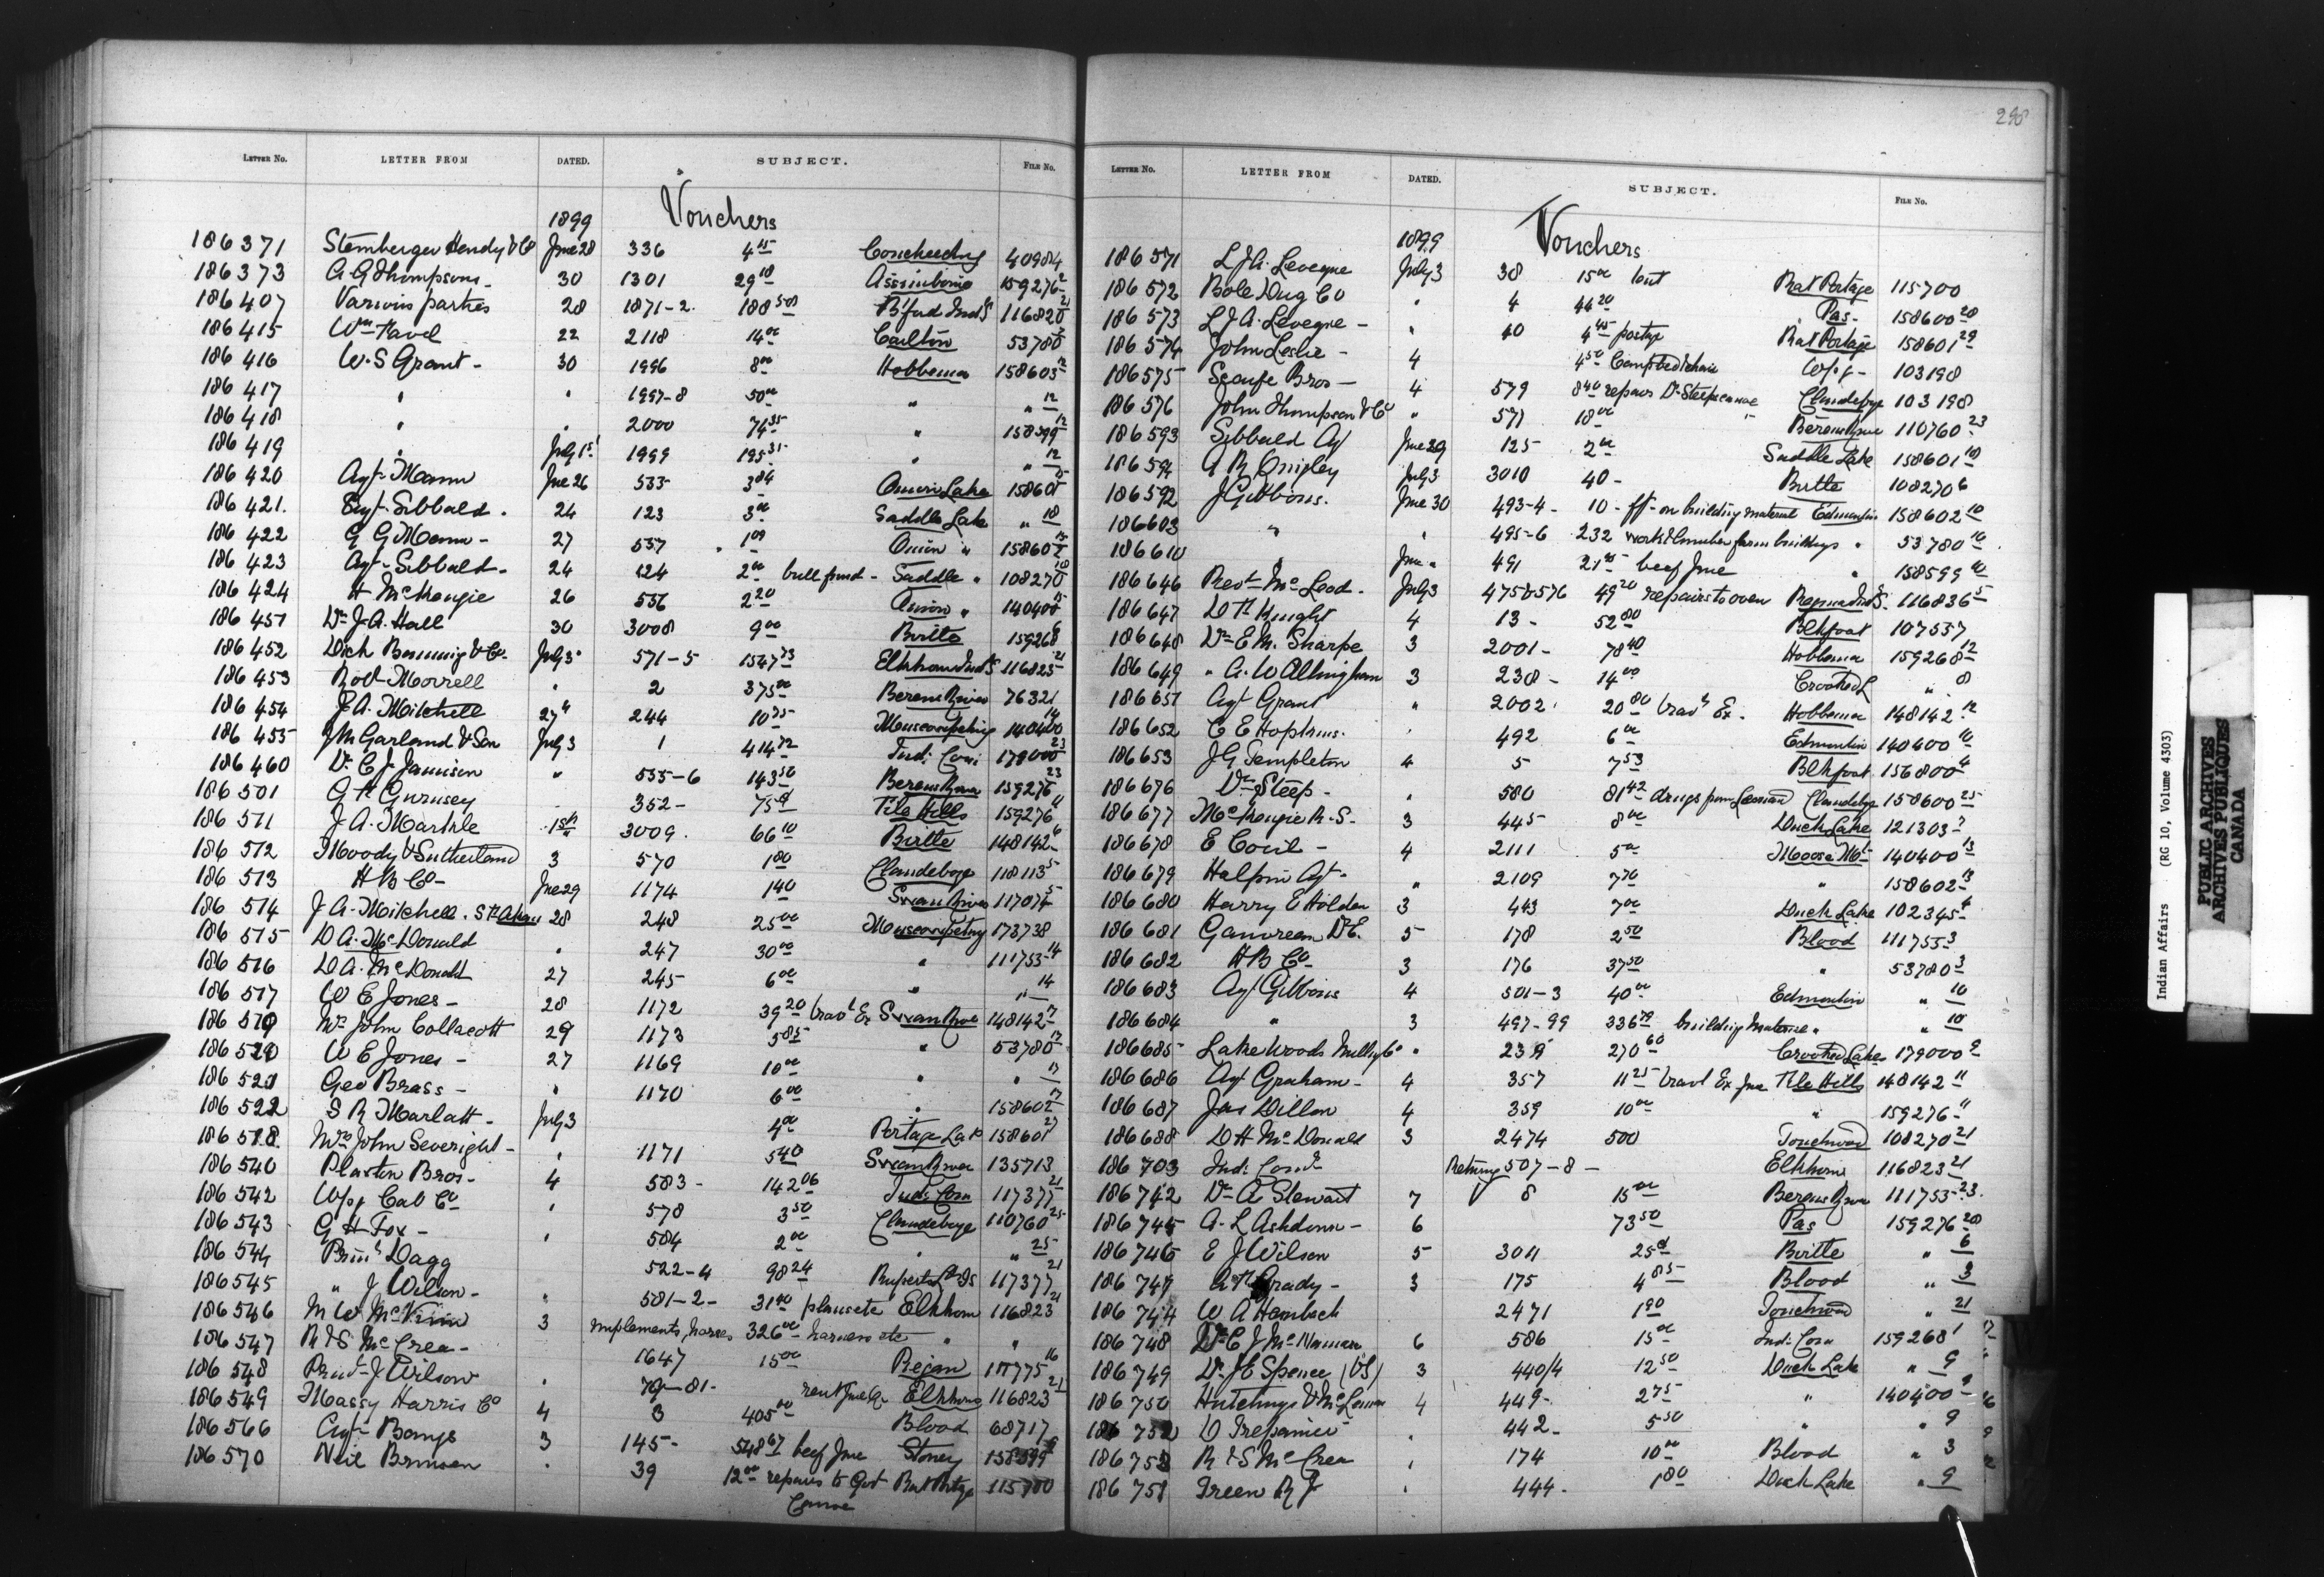 LETTER No. LETTER FROM DATED. SUBJECT. FILE No.
1899 Vouchers
186371 Hendy & Co June 28 336 4 15 Coucheeching 40984
186373 A. G. Thompson 30 1301 29 18 Assiniboine 159276 2
186407 Various parties 28 1871-2. 188 50 B'ford Ind S 116820 21
186415 Wm 22 2118 14 00 Carlton 53780
186416 W. S Grant - 30 1996 8 00 Hobbema 158603 12
186417 " " 1997-8 50 00 " " 12
186418 " " 2000 74 35 " 158599 12
186419 " July 1st 1999 195 35 " " 12
186420 Agt. Mann Jne 26 533 3 84 Onion Lake 158601 15
186421. Agt. Sibbald. 24 123 3 00 Saddle Lake " 18
186422 G G Mann - 27 537 1 09 Onion " 158602 15
186423 Agt. Sibbald - 24 124 2 00 bull pound - Saddle " 108270 18
186424 H McKenzie 26 536 2 20 Onion " 140400 15
186451 Dr J. A. Hall 30 3008 9 00 Birtle 159268 6
186452 Dick Banning & Co. July 3 571-5 1547 73 Elkhorn Ind S 116823 21
186453 Robt Morrell " 2 375 00 Berens River 76321
186454 J. A. Mitchell 27" 244 10 75 Muscowpetung 140400 14
186455 J M Garland & Son July 3 1 414 72 Ind: Com 179000 23
186460 Dr C. J. Jamison " 535-6 143 50 Berens River 159276 23
186501 G H Gurnsey 352- 75 File Hills 159276 11
186511 J. A. Markle 1st 3009. 66 10 Birtle 148142 6
186512 Moody & Sutherland 3 570 1 80 Clandeboye 118113 5
186513 H B Co - Jne 29 1174 1 40 Swan River 117074 5
186514 J. A. Mitchell. 28 248 25 00 Muscowpetung 173738
186515 D A. McDonald " 247 30 00 " 111755 14
186516 D A. McDonald 27 245 6 00 " " 14
186517 W E Jones - 28 1172 39 20 travl Ex Swan River 148142 17
186519 Mr John Collacott 29 1173 5 85 " 53780 17
186520 W E Jones - 27 1169 10 00 " " 17
186521 Geo Brass - " 1170 6 00 " 158602 17
186522 S R Marlatt - July 3 4 00 Portage La P 158601 27
186518. Mrs John Severight - " 1171 5 40 Swan River 135713
186540 Plaxton Bros - 4 583- 142 06 Ind: Com 117377 21
186542 Wpg Cab Co - " 578 3 50 Clandeboye 110760 25
186543 G H Fox - " 584 2 00 " " 25
186544 Prinl Dagg 522-4 98 24 Ruperts Ld IS 117377 21
186545 " J Wilson - " 581-2- 31 00 Elkhorn 116823 21
186546 M W 3 implements, horses 326 00 harness etc " "
186547 R & S McCrea - 1647 15 00 Piegan 117775 16
186548 J Wilson " 79-81- rent Jne Qr Elkhorn 116823 21
186549 Massy Harris Co 4 3 405 00 Blood 68717
186566 Agt. Bangs 3 145- 548 67 beef Jne Stoney 158599
186570 Neil " 39 12 00 repairs to Govt Rat Portage 115700
Canoe
298
LETTER No. LETTER FROM DATED. SUBJECT. FILE No.
1899 Vouchers
186571 L J A. Leveque July 3 38 15 00 Rat Portage 115700
186572 Bole Drug Co " 4 44 20 Pas - 158600 20
186573 L J A. Leveque - " 40 4 45 postage Rat Portage 158601 29
186574 John Leslie - 4 4 50 Camp bed & chair Wpg - 103198
186575 Scarfe Bros - 4 579 8 40 repairs Dr Steeps canoe Clandeboye 103198
186576 John Thompson & Co " 571 18 00 " Berens River 110760 23
186593 Sibbald Agt June 29 125 2 00 Saddle Lake 158601 18
186594 A R July 3 3010 40 - Birtle 108270 6
186592 J Gibbons. June 30 493-4 - 10 - on building material Edmonton 158602 10
186603 " " 495-6 232 work & lumber farm buildings " 53780 10
186610 June " 491 21 45 beef Jne " 158599 10
186646 Revd McLeod. July 3 475 & 576 49 20 repairs to oven Regina Ind S. 116836 5
186647 D H 4 13 - 52 80 Blkfoot 107537
186648 Dr E. M. Sharpe 3 2001 - 78 40 Hobbema 159268 12
186649 " A. W Allingham 3 238 - 14 00 Crooked L " 8
186651 Agt Grant " 2002 20 80 travl Ex. Hobbema 148142 12
186652 C E Hopkins. " 492 6 00 Edmonton 140400 10
186653 J G Templeton 4 5 7 53 Blkfoot 156800 4
186676 Dr Steep - " 580 81 42 drugs from Leeman Clandeboye 158600 25
186677 McKenzie R. S. - 3 445- 8 00 Duck Lake 121303
186678 E - 4 2111 5 00 Moose Mt 140400 13
186679 Halpin Agt. " 2109 7 70 " 158602 13
186680 Harry E Holden 3 443 7 00 Duck Lake 102345
186681 Gamreau D E. 5 178 2 50 Blood 111755 3
186682 H B Co - 3 176 37 50 " 53780 3
186683 Agt Gibbons 4 501-3 40 00 Edmonton " 10
186684 " 3 497-99 336 79 building material " " 10
186685 Lake Woods Millg Co " 239 270 60 Crooked Lake 179000 9
186686 Agt Graham - 4 357 11 25 travl Ex Jne File Hills 148142 11
186687 Jas Dillon 4 359 10 00 " 159276 11
186688 D H McDonald 3 2474 500 Touchwood 108270 21
186703 Ind: Comr Returng 507-8 - Elkhorn 116823 21
186742 Dr A Stewart 7 8 15 00 Berens River 111755 23.
186745 A. L Ashdown - 6 73 50 Pas 159276 20
186746 E J Wilson 5 3011 25 Birtle " 6
186747 Grady - 3 175 4 85 Blood " 3
186744 W A Hambach 2471 1 90 Touchwood " 21
186748 Dr C J McNamara 6 586 15 00 Ind: Com 159268 1
186749 Dr J E Spence (VS) 3 440/4 12 50 Duck Lake " 9
186750 Hutchings & McLennan 4 449 - 2 75 " 140400 9
186752 O Trepanier " 442 - 5 50 " " 9
186753 R & S McCrea " 174 10 00 Blood " 3
186751 Green R J " 444 - 1 80 Duck Lake " 9
Indian Affairs (RG 10, Volume 4303)
PUBLIC ARCHIVES
ARCHIVES PUBLIQUES
CANADA